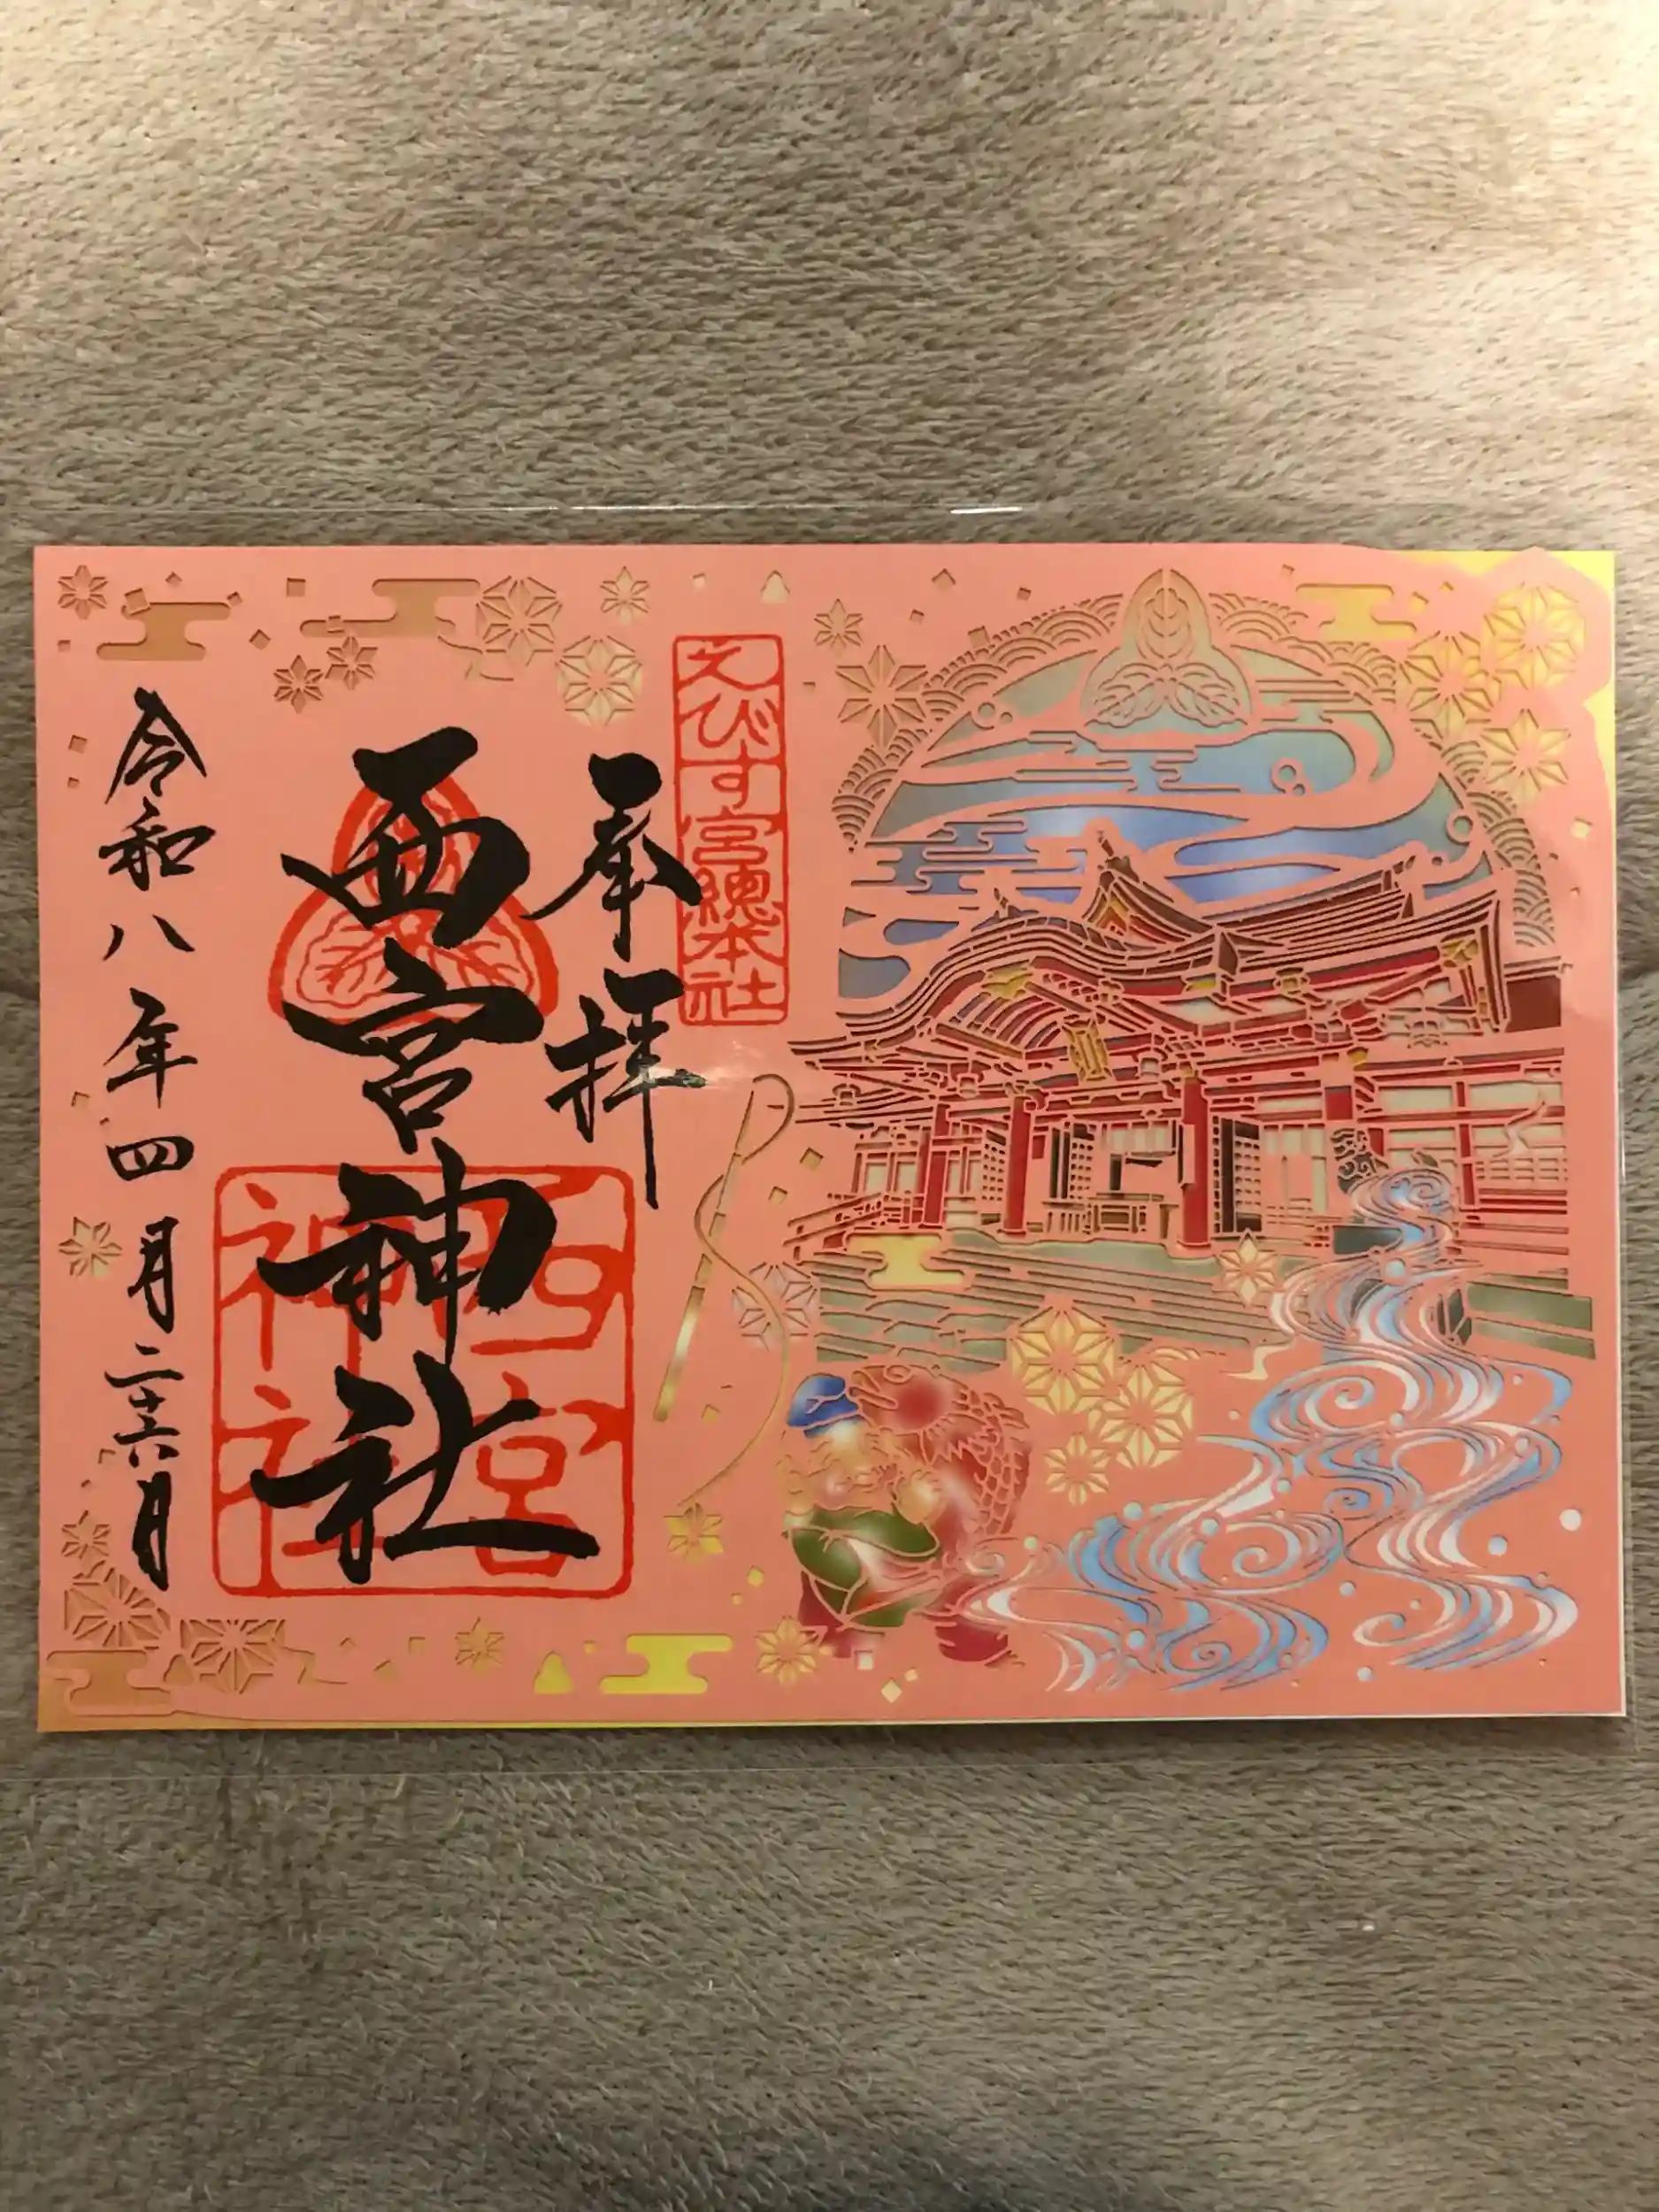 えびす宮總本社
奉拝
西宮神社
西宮
神社
令和八年四月二十六日